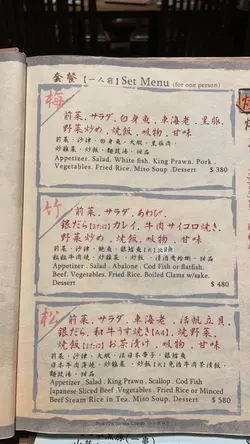 套餐【一人前】Set Menu (for one person)
梅
前菜、サラダ、白身魚、車海老、黒豚、
野菜炒め、焼飯、吸物、甘味
前菜、沙律、白身魚、大蝦、黑豚肉、
炒雜菜、炒飯、麵豉湯、甜品
Appetizer . Salad. White fish. King Prawn. Pork .
Vegetables. Fried Rice. Miso Soup .Dessert
$ 380
竹
前菜、サラダ、あわび、
銀だら【または】カレイ、牛肉サイコロ焼き、
野菜炒め、焼飯、吸物、甘味
前菜、沙律、鮑魚、銀鱈魚【又】比目魚
粒粒牛肉燒、炒雜菜、炒飯、清酒煮蛤蜊、甜品
Appetizer . Salad . Abalone . Cod Fish or flatfish.
Beef. Vegetables. Fried Rice. Boiled Clams w/sake.
Dessert
$ 480
松
前菜、サラダ、車海老、活帆立貝、
銀だら、和牛うす焼き【A4】、焼野菜、
焼飯【または】お茶漬け、吸物、甘味
前菜、沙律、大蝦、活日本帶子、銀鱈魚
日本牛肉薄燒、炒雜菜、炒飯【又】免治牛肉茶漬飯、
麵豉湯、甜品
Appetizer . Salad . King Prawn . Scallop . Cod Fish
Japanese Sliced Beef . Vegetables . Fried Rice or Minced
Beef Steam Rice in Tea. Miso Soup . Dessert
$ 580